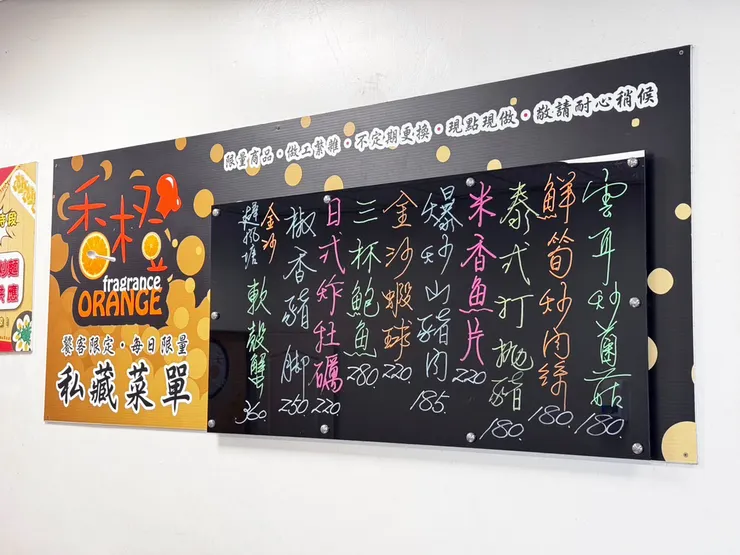 限量商品・做工繁雜・不定期更換・現點現做・敬請耐心稍候
香橙
fragrance
ORANGE
饕客限定・每日限量
私藏菜單
雲耳炒菌菇 180.
鮮筍炒肉絲 180.
泰式打拋豬 180.
米香魚片 220
爆炒山豬肉 185.
金沙蝦球 220.
三杯鮑魚 280
日式炸牡蠣 220
椒香豬腳 250
金沙
避風塘 軟殼蟹 360.
時段
炒麵
供應